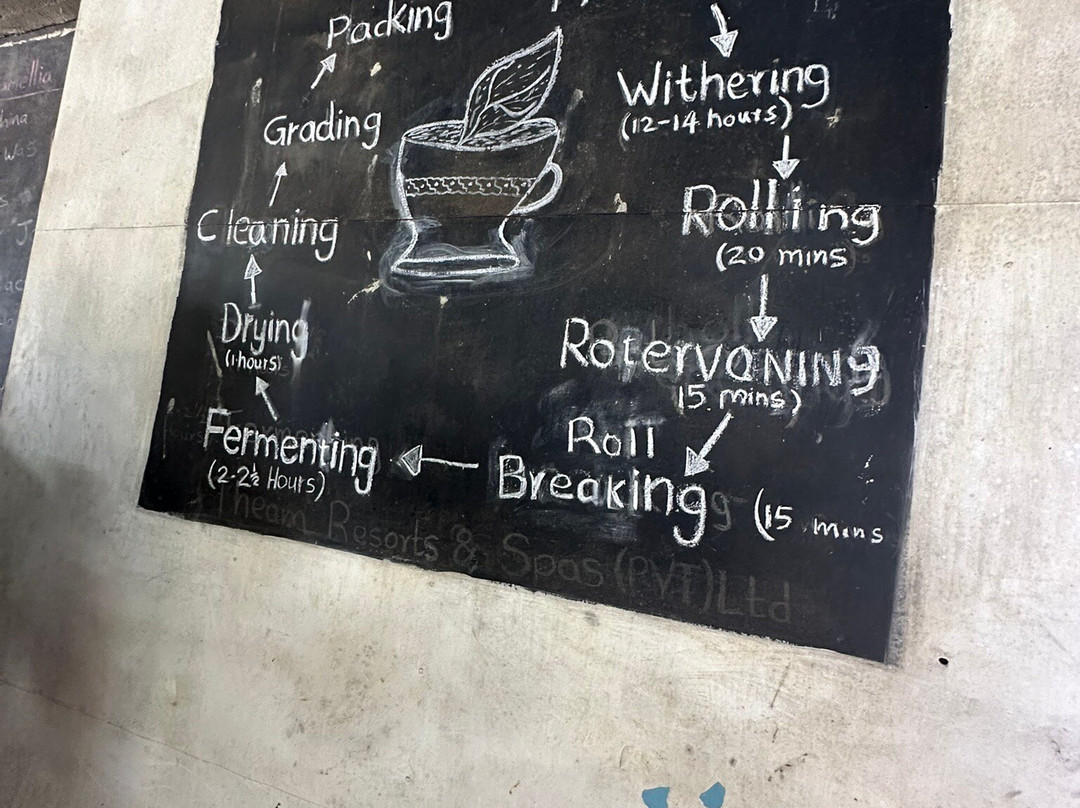 Packing
Withering
(12-14 hours)
Grading
Rolling
(20 mins
Cleaning
RotervaNiNg
15. mins)
Drying
(1 hours)
Roll
Breaking (15 mins
Fermenting
(2-2½ Hours)
Theam Resorts & Spas (PVT) Ltd